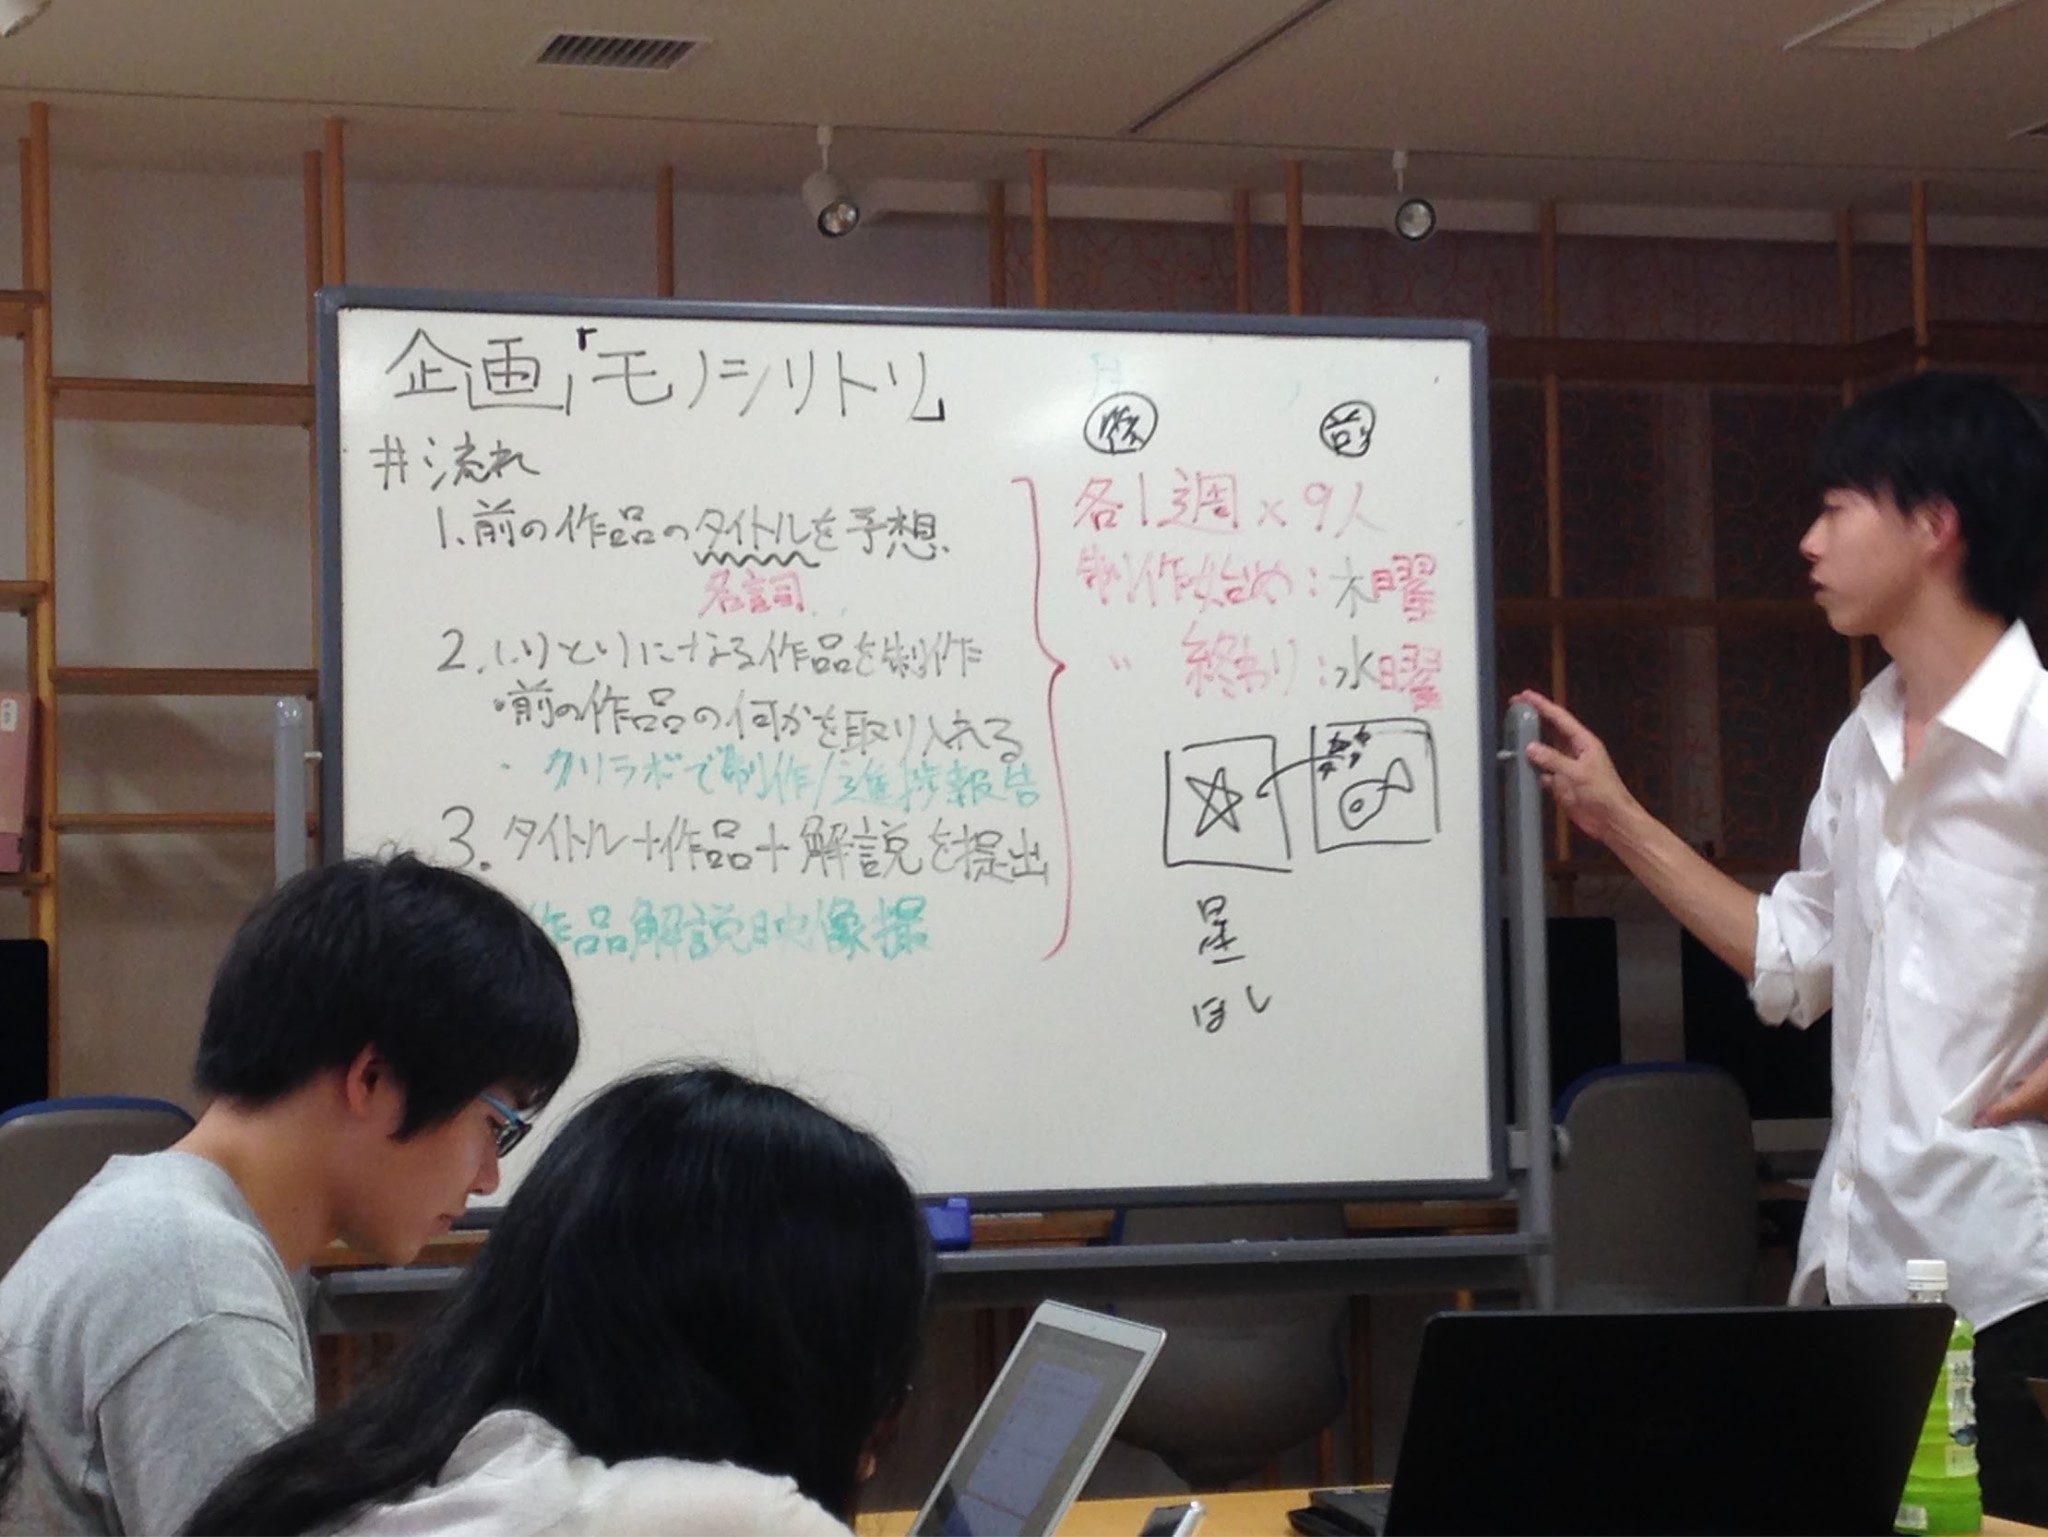 企画「モノシリトリ」
# 流れ
1. 前の作品のタイトルを予想
名詞
2. しりとりになる作品を制作
・前の作品の何かを取り入れる
・クリラボで制作/進捗報告
3. タイトル+作品+解説を提出
作品解説映像撮
後 前
各1週×9人
制作始め:木曜
〃 終わり:水曜
星
ほし